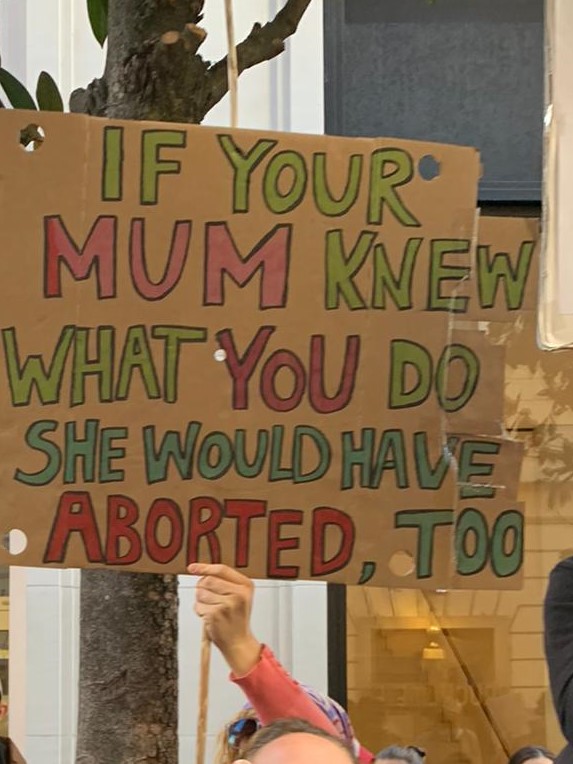 IF YOUR
MUM KNEW
WHAT YOU DO
SHE WOULD HAVE
ABORTED, TOO